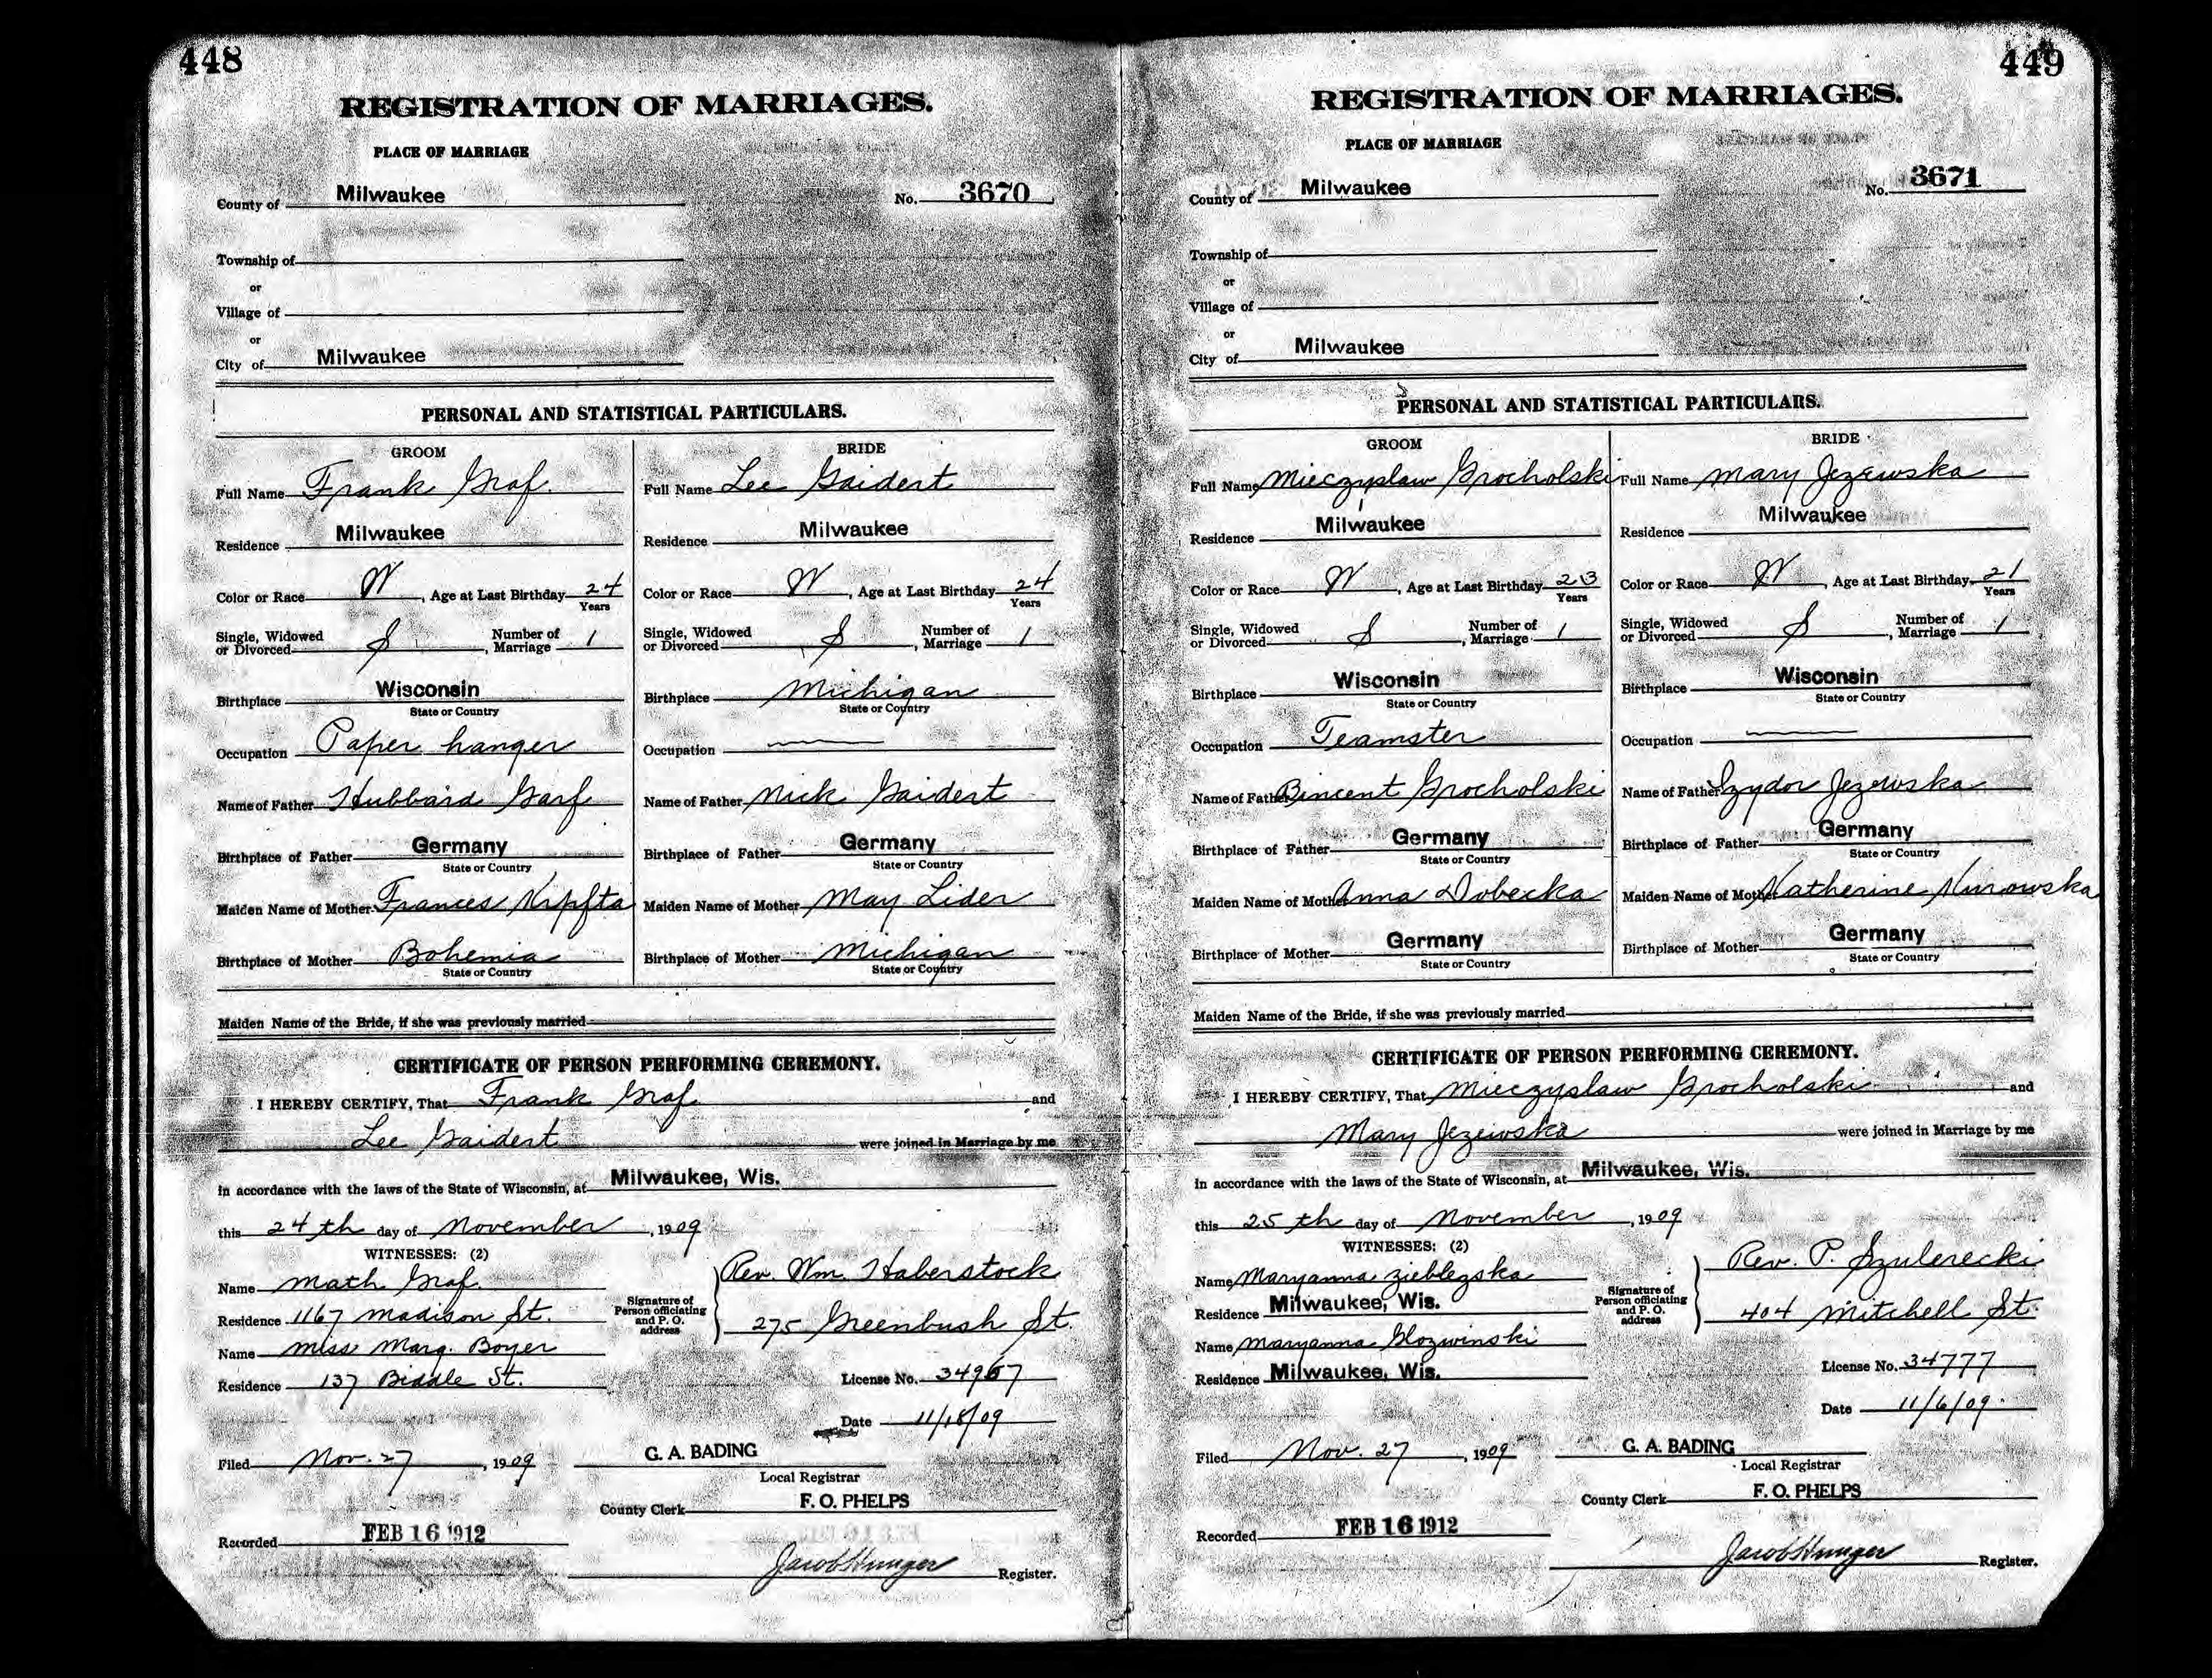 448
REGISTRATION OF MARRIAGES.
PLACE OF MARRIAGE
County of Milwaukee No. 3670
Township of
or
Village of
or
City of Milwaukee
PERSONAL AND STATISTICAL PARTICULARS.
GROOM
Full Name Frank Graf.
Residence Milwaukee
Color or Race W, Age at Last Birthday 24
Years
Single, Widowed or Divorced S, Number of Marriage 1
Birthplace Wisconsin
State or Country
Occupation Paper hanger
Name of Father Hubbard Garf
Birthplace of Father Germany
State or Country
Maiden Name of Mother Frances
Birthplace of Mother Bohemia
State or Country
BRIDE
Full Name Lee Gaidert
Residence Milwaukee
Color or Race W, Age at Last Birthday 24
Years
Single, Widowed or Divorced S, Number of Marriage 1
Birthplace Michigan
State or Country
Occupation
Name of Father Nick Gaidert
Birthplace of Father Germany
State or Country
Maiden Name of Mother May Lider
Birthplace of Mother Michigan
State or Country
Maiden Name of the Bride, if she was previously married
CERTIFICATE OF PERSON PERFORMING CEREMONY.
I HEREBY CERTIFY, That Frank Graf. and
Lee Gaidert were joined in Marriage by me
in accordance with the laws of the State of Wisconsin, at Milwaukee, Wis.
this 24th day of November, 1909
WITNESSES: (2)
Name Math Graf.
Residence 1167 Madison St.
Name Miss Marg. Boyer
Residence 137 Biddle St.
Signature of
Person officiating
and P. O.
address
Rev. Wm. Haberstock
275 Greenbush St.
License No. 34967
Date 11/18/09
Filed Nov. 27, 1909 G. A. BADING
Local Registrar
County Clerk F. O. PHELPS
Recorded FEB 16 1912
Jacob Hunger Register.
449
REGISTRATION OF MARRIAGES.
PLACE OF MARRIAGE
County of Milwaukee No. 3671
Township of
or
Village of
or
City of Milwaukee
PERSONAL AND STATISTICAL PARTICULARS.
GROOM
Full Name Mieczyslaw Grocholski
Residence Milwaukee
Color or Race W, Age at Last Birthday 23
Years
Single, Widowed or Divorced S, Number of Marriage 1
Birthplace Wisconsin
State or Country
Occupation Teamster
Name of Father Bincent Grocholski
Birthplace of Father Germany
State or Country
Maiden Name of Mother Anna Dobecka
Birthplace of Mother Germany
State or Country
BRIDE
Full Name Mary Jezewska
Residence Milwaukee
Color or Race W, Age at Last Birthday 21
Years
Single, Widowed or Divorced S, Number of Marriage 1
Birthplace Wisconsin
State or Country
Occupation
Name of Father Izydor Jezewska
Birthplace of Father Germany
State or Country
Maiden Name of Mother Katherine
Birthplace of Mother Germany
State or Country
Maiden Name of the Bride, if she was previously married
CERTIFICATE OF PERSON PERFORMING CEREMONY.
I HEREBY CERTIFY, That Mieczyslaw Grocholski and
Mary Jezewska were joined in Marriage by me
in accordance with the laws of the State of Wisconsin, at Milwaukee, Wis.
this 25th day of November, 1909
WITNESSES: (2)
Name Maryanna
Residence Milwaukee, Wis.
Name Maryanna Glozwinski
Residence Milwaukee, Wis.
Signature of
Person officiating
and P. O.
address
Rev. P. Szulerecki
404 Mitchell St.
License No. 34777
Date 11/6/09.
Filed Nov. 27, 1909 G. A. BADING
Local Registrar
County Clerk F. O. PHELPS
Recorded FEB 16 1912
Jacob Hunger Register.